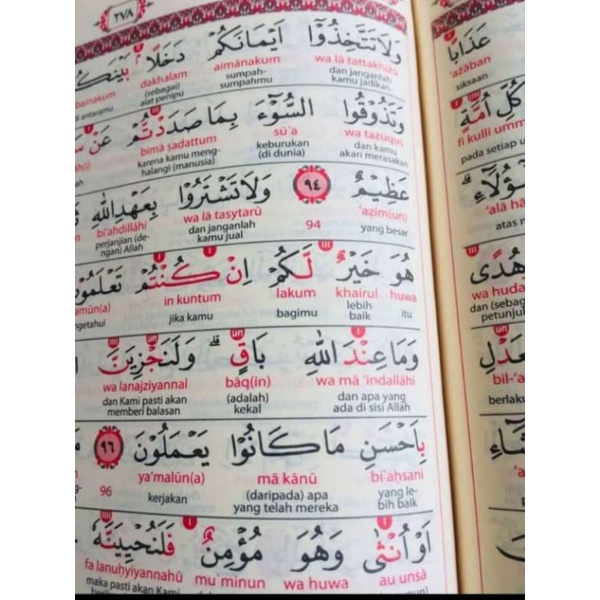 ٢٧٨
وَلَا تَتَّخِذُوْٓا اَيْمَانَكُمْ دَخَلًاۢ
wa lā tattakhiżū aimānakum dakhalam bainakum
dan janganlah kamu jadikan sumpah-sumpahmu (sebagai) alat penipu di antaramu
وَتَذُوْقُوا السُّوْۤءَ بِمَا صَدَدْتُّمْ عَنْ
wa tażūqus sū'a bimā ṣadattum
dan kamu akan merasakan keburukan (di dunia) karena kamu meng-halangi (manusia)
عَظِيْمٌ ٩٤ وَلَا تَشْتَرُوْا بِعَهْدِ اللّٰهِ
'aẓīm(un) 94 wa lā tasytarū bi'ahdillāhi
yang besar dan janganlah kamu jual perjanjian (de-ngan) Allah
هُوَ خَيْرٌ لَّكُمْ اِنْ كُنْتُمْ تَعْلَمُوْنَ
huwa khairul lakum in kuntum
itu lebih baik bagimu jika kamu
وَمَا عِنْدَ اللّٰهِ بَاقٍۗ وَلَنَجْزِيَنَّ
wa mā 'indallāhi bāq(in) wa lanajziyannal
dan apa yang ada di sisi Allah (adalah) kekal dan Kami pasti akan memberi balasan
بِاَحْسَنِ مَا كَانُوْا يَعْمَلُوْنَ ٩٦
bi'aḥsani mā kānū ya'malūn(a) 96
yang le-bih baik (daripada) apa yang telah mereka kerjakan
اَوْ اُنْثٰى وَهُوَ مُؤْمِنٌ فَلَنُحْيِيَنَّهٗ
au unṡā wa huwa mu'minun fa lanuḥyiyannahū
maka pasti akan Kami
عَذَابًا
'ażāban
siksaan
كُلِّ اُمَّةٍ
fi kulli umm
pada setiap
هٰٓؤُلَاۤءِ
'alā hā
atas
هُدًى
wa huda
dan (sebag
petunjuk
بِالْعَدْلِ
bil-'a
berlaku